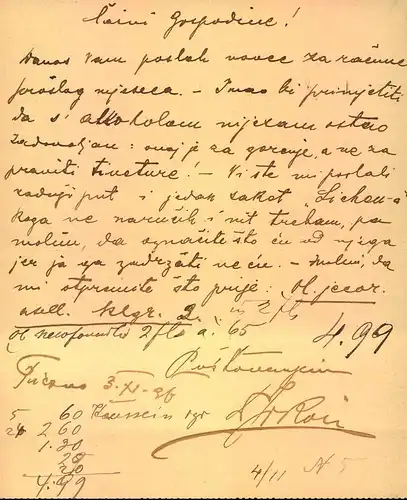 Čaini Gospodine!
Danas Vam poslah novce za račune
prošlog mjeseca. – Imao bi primjetiti
da s' alkoholom nijesam ostao
zadovoljan: onaj je za gorenje, a ne za
praviti tincture! – Vi ste mi poslali
zadnji put i jedan sakot „Lichen-a"
koga ne naručih i nit trebam, pa
molim, da označite što ću od njega
jer ja ga zadržati neću. – Molim, da
mi otpremite što prije: Ol. jecor.
asell. klgr. 2. in 2 fl
2 fl a. 65
4.99
Poštovanjem
3. XI
5 60
2 60
1.30
25
20
4.99
4/11 N 5